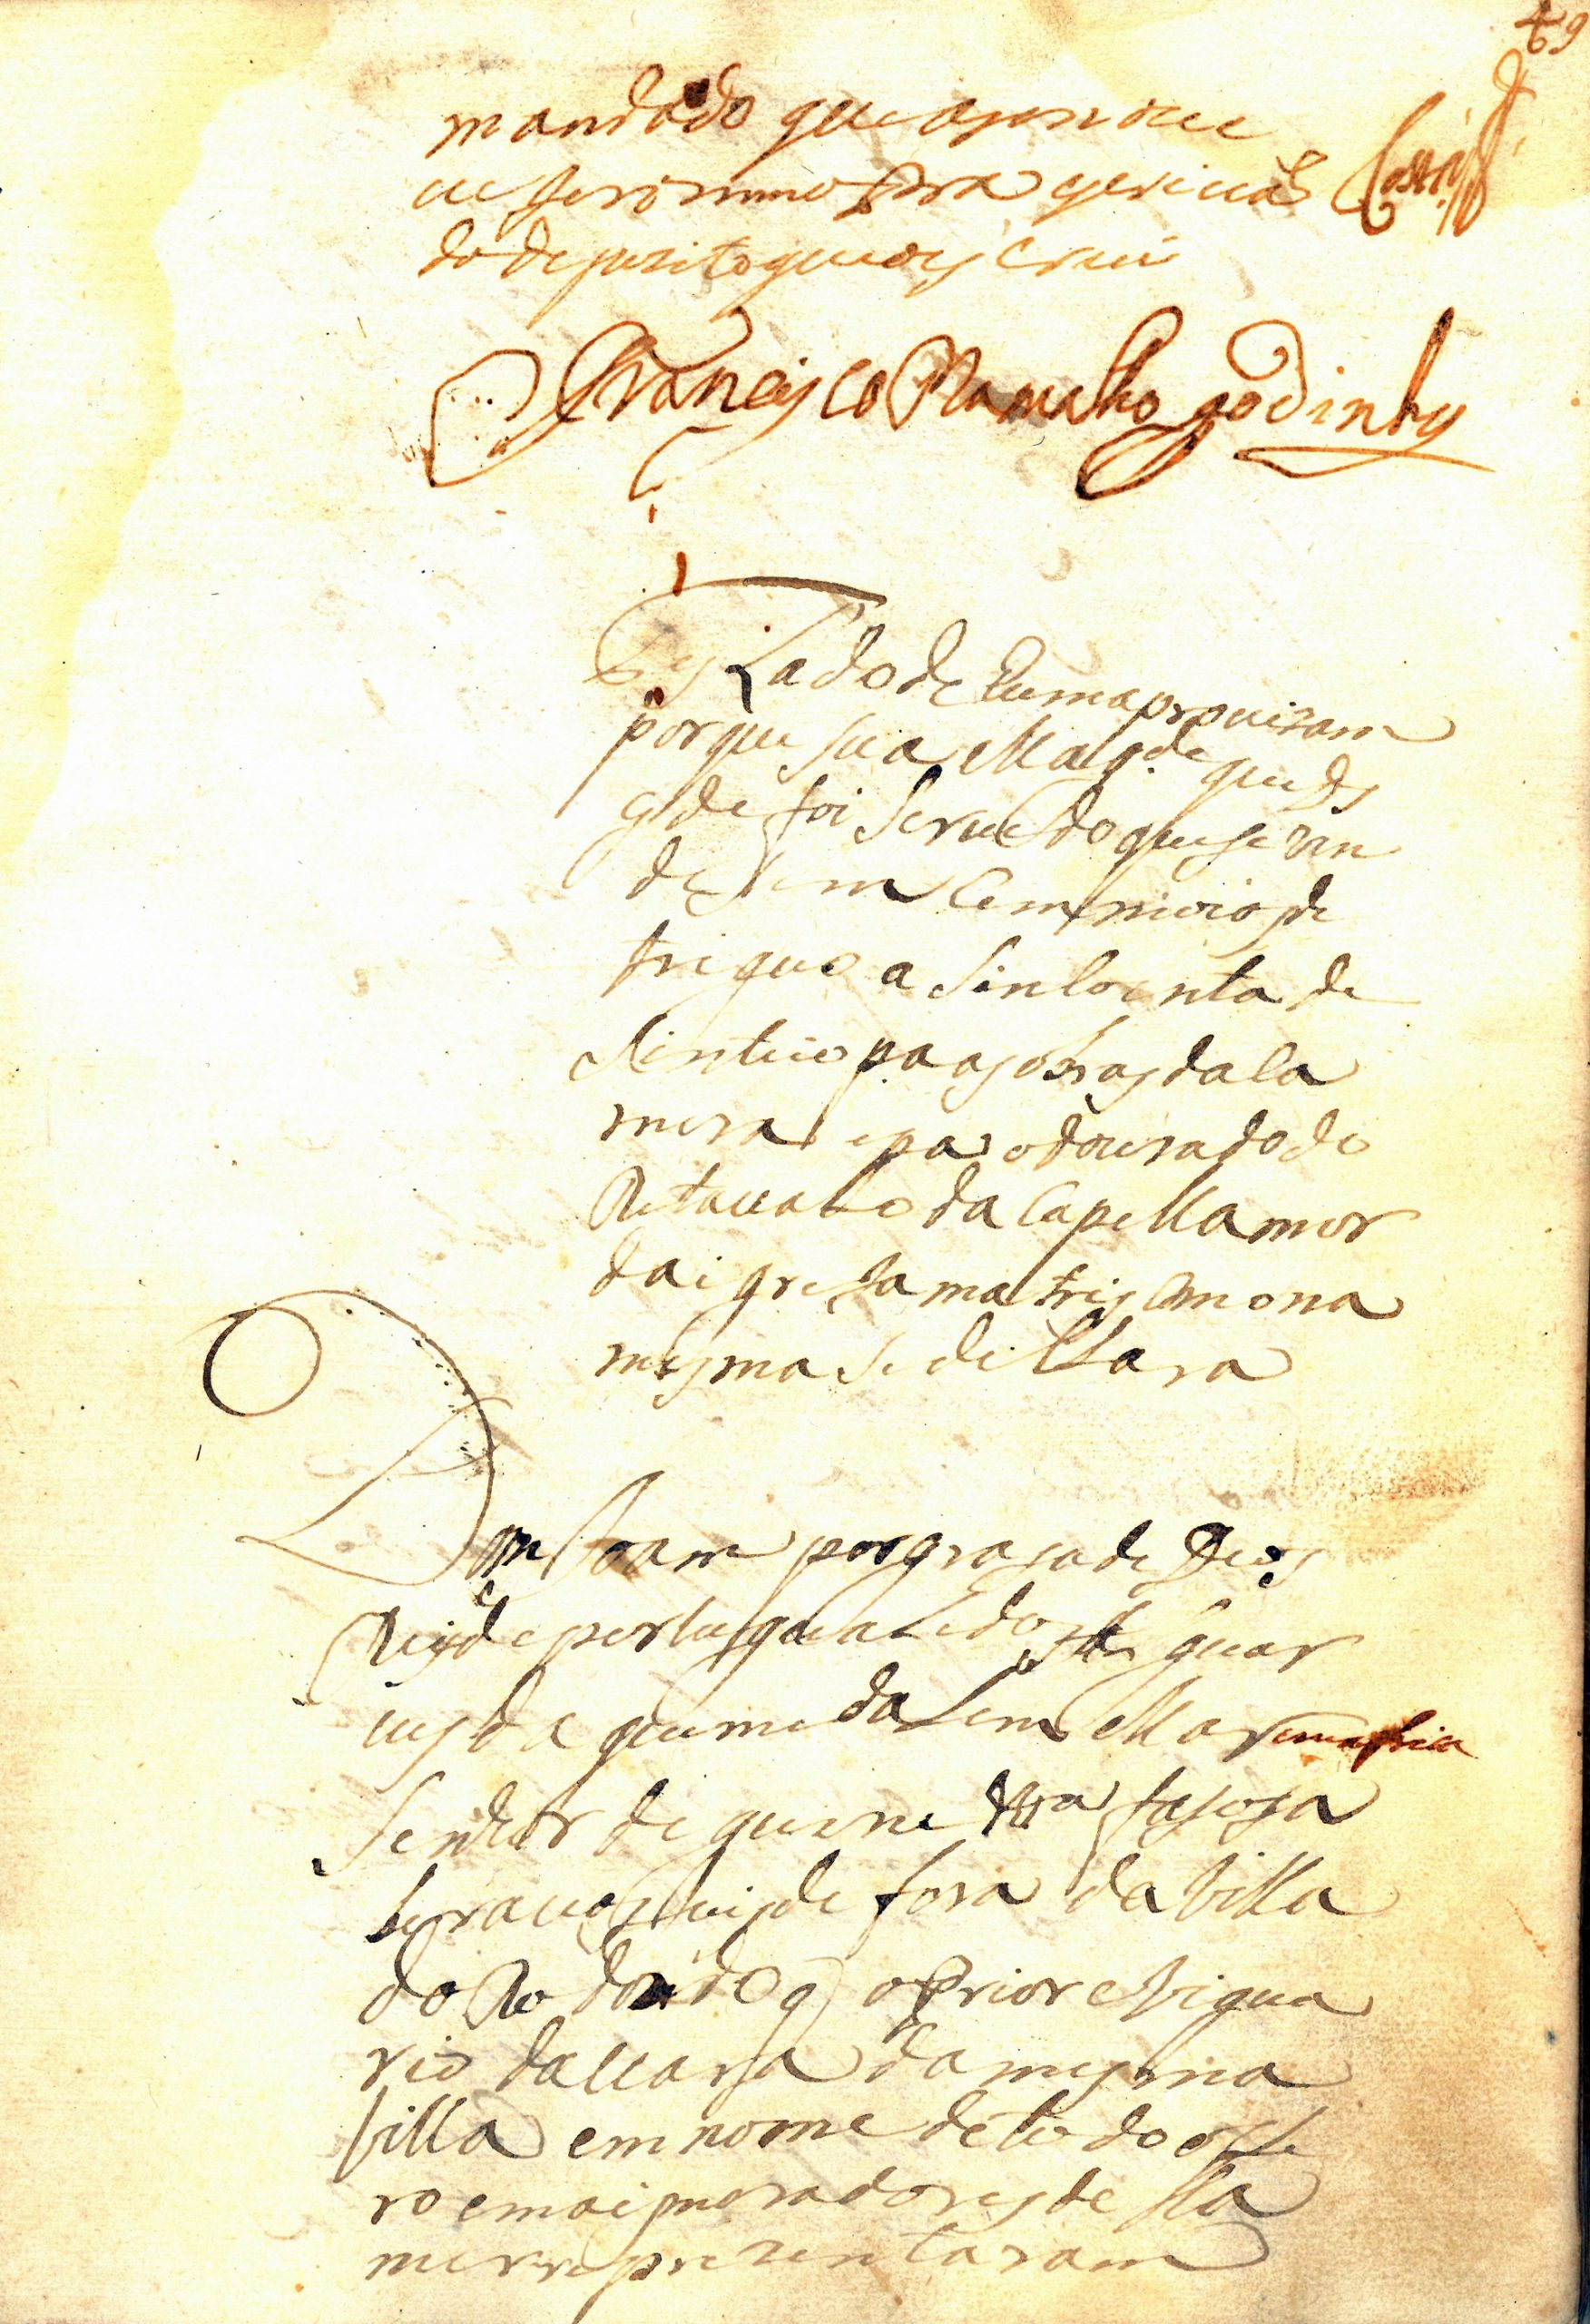 49
mandado que
do deposito que escreui
Francisco Ramalho godinho
Treslado de huma prouizam
por que sua Mag.de que ds
g.de foi seruido que se ven
desem sem moios de
triguo a sincoenta de
sinteio p.a as obras da Ca
mera e p.a o dourado do
Retauallo da Capella mor
da igreja matris Como na
mesma se declara
Dom Joam por grasa de Deos
Rei de portugual e dos Alguar
ues da quem e dalem Mar em africa
Senhor de guine etta faso sa
ber a uos Juis de fora da Villa
do Redondo q o Prior e Vigua
rio da uara da mesma
Villa em nome de todo o Cle
ro e mais moradores della
me reprezentaram